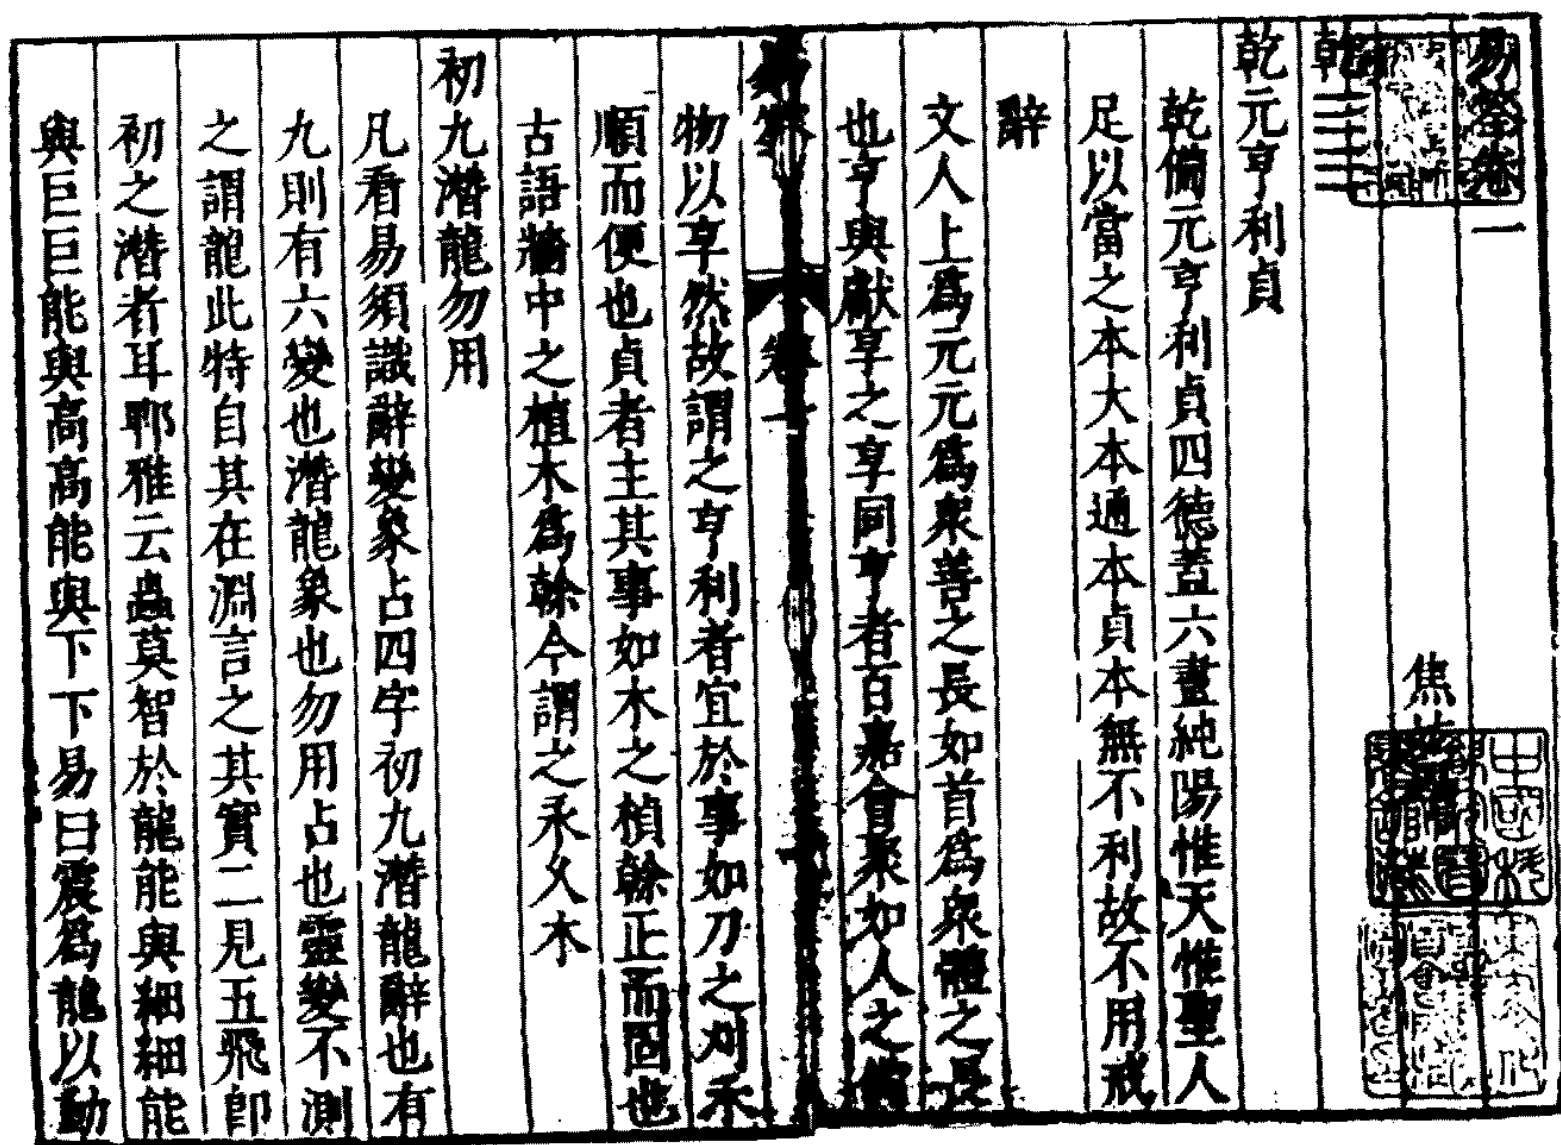 易筌卷一
焦竑
乾
乾元亨利貞
乾備元亨利貞四德蓋六畫純陽惟天惟聖人
足以當之本大本通本貞本無不利故不用戒
辭
文人上爲元元爲衆善之長如首爲衆體之長
也亨與獻享之享同亨者百嘉會聚如人之備
易筌 卷一
物以享然故謂之亨利者宜於事如刀之刈禾
順而便也貞者主其事如木之楨榦正而固也
古語牆中之植木爲榦今謂之永久木
初九潛龍勿用
凡看易須識辭變象占四字初九潛龍辭也有
九則有六變也潛龍象也勿用占也靈變不測
之謂龍此特自其在淵言之其實二見五飛卽
初之潛者耳郭雅云蟲莫智於龍龍能與細細能
與巨巨能與高高能與下下易曰震爲龍以動